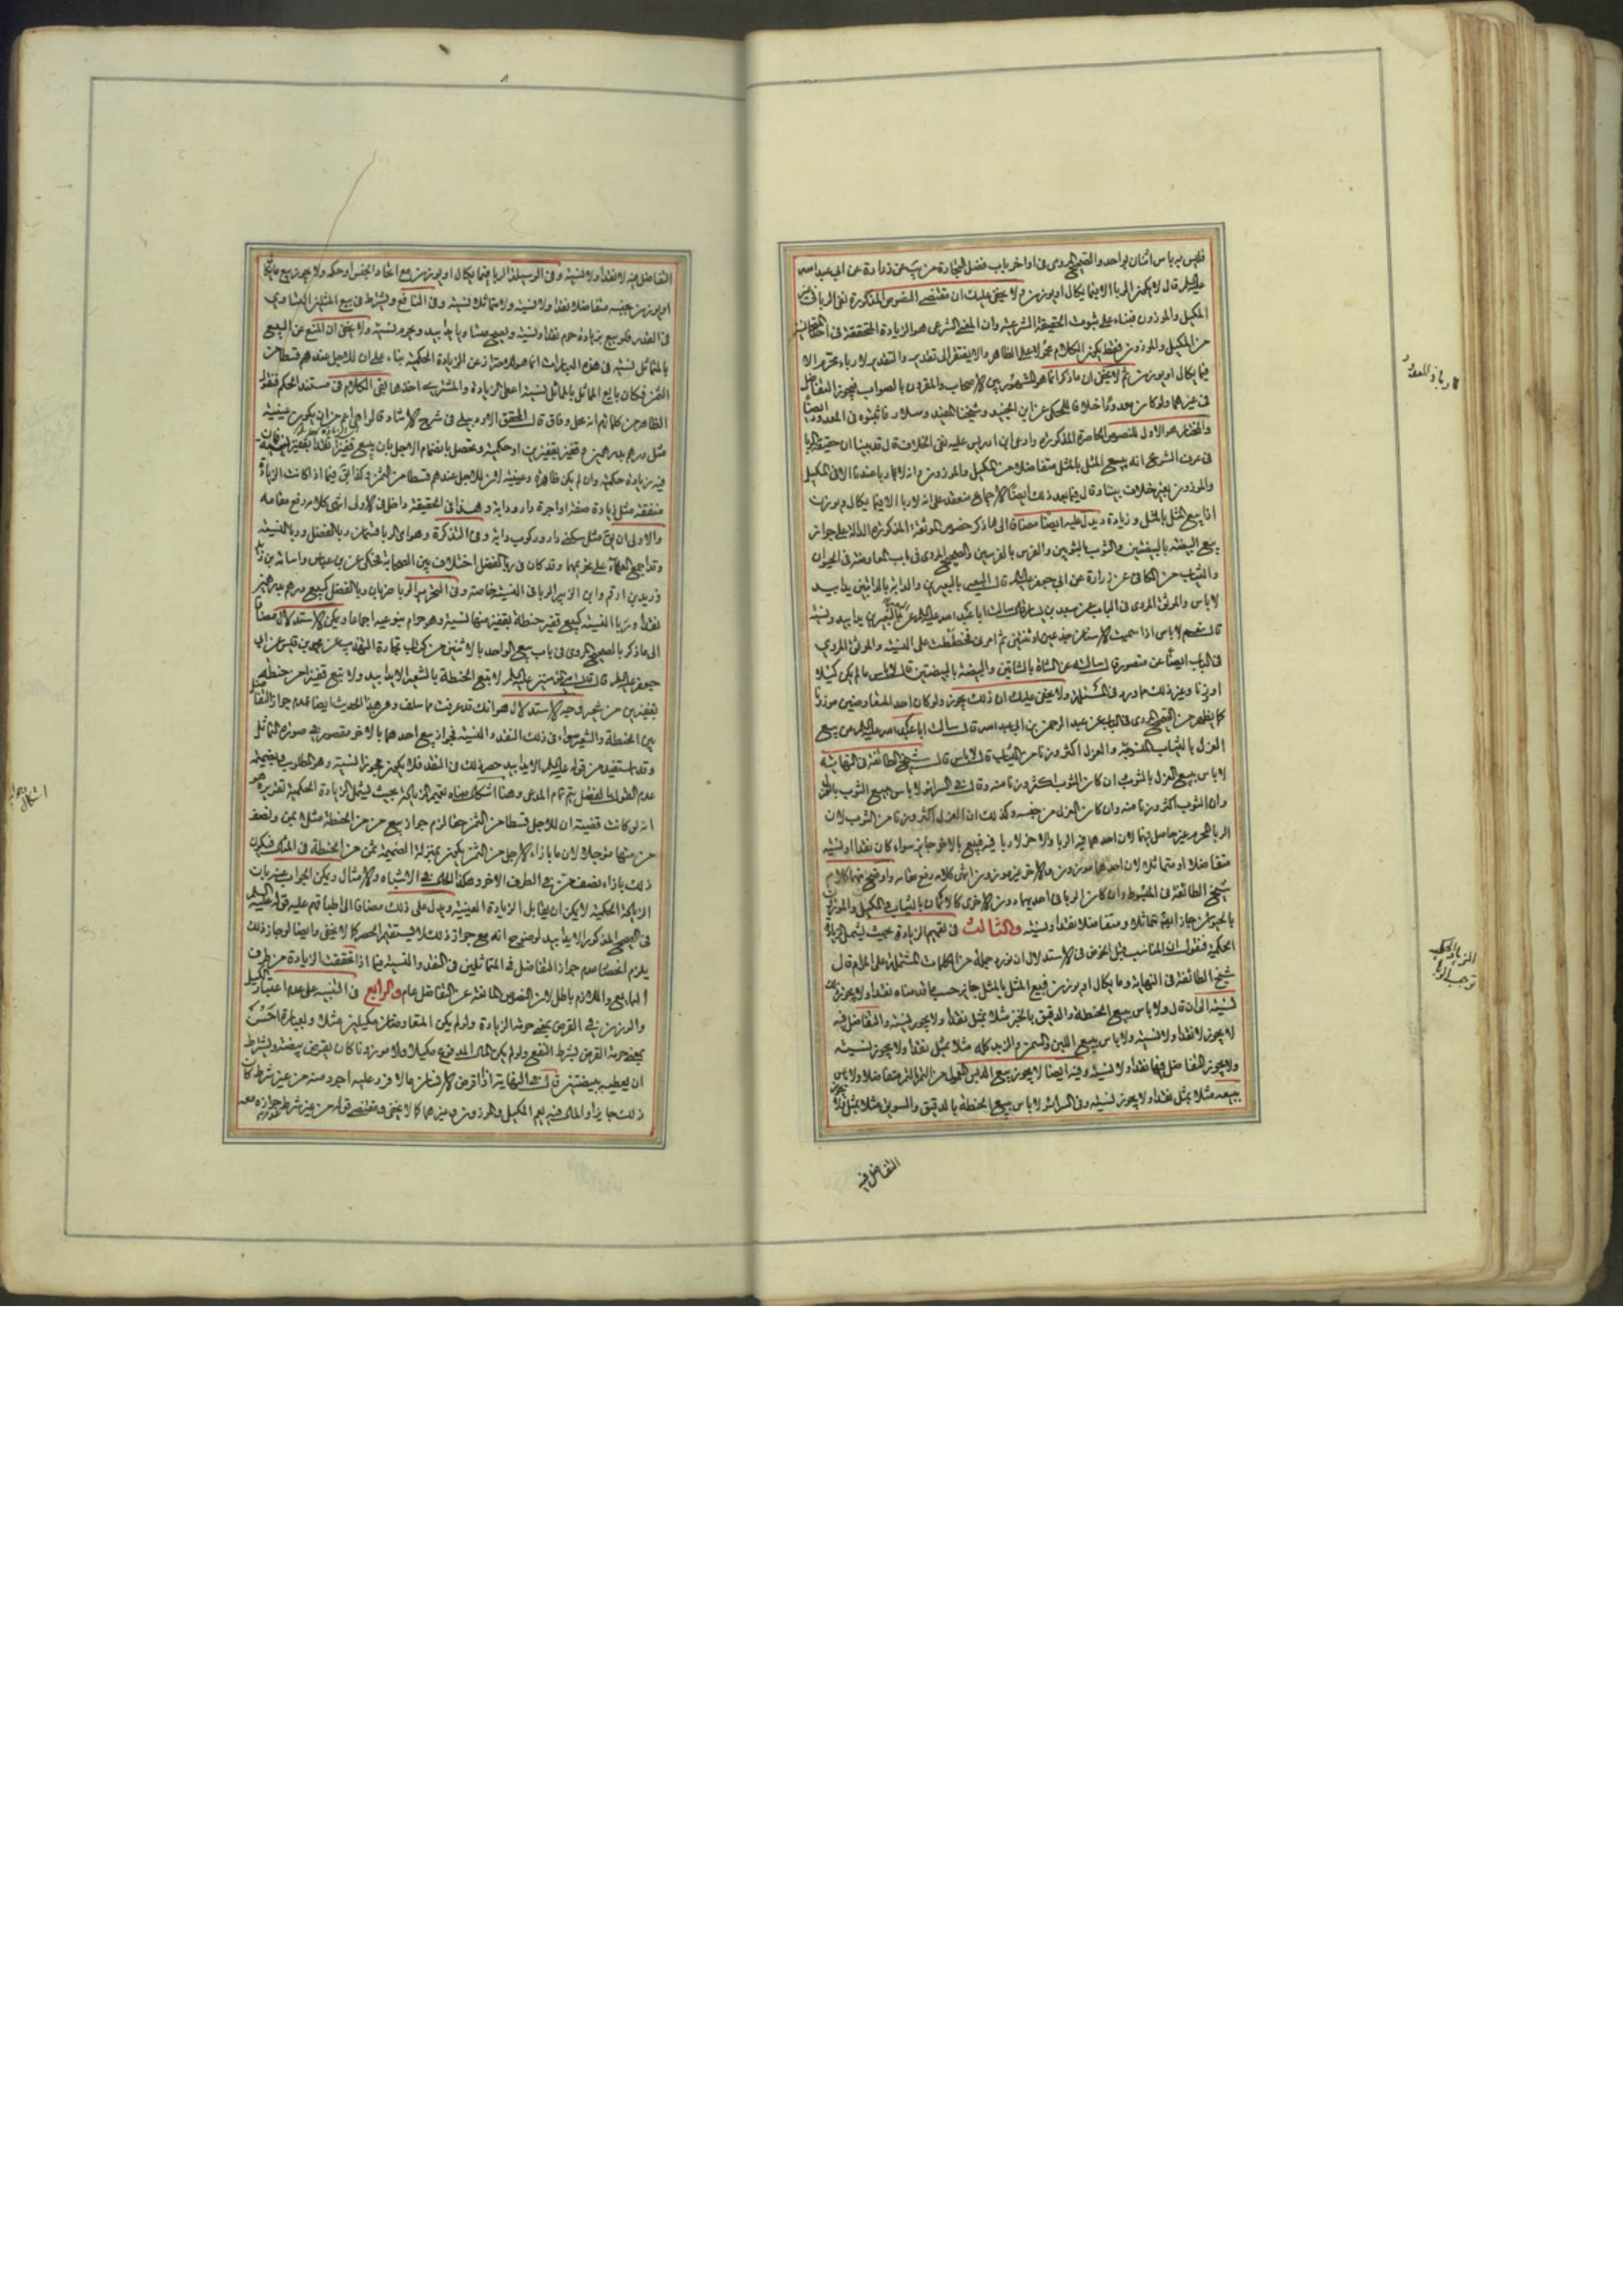 فليس به باس اثنان بواحد والصحيح المروى فى اواخر باب فضل التجارة من يب عن زرارة عن ابى عبد الله
عليه السلم قال لا يكون الربا الا فيما يكال او يوزن ولا يخفى عليك ان مقتضى النصوص المذكورة نفى الربا فى غير
المكيل والموزون فبناء على ثبوت الحقيقة الشرعية وان المعنى الشرعى هو الزيادة المتحققة فى
من المكيل والموزون فقط يكون الكلام محمولا على الظاهر ولا يفتقر الى تقدير والتقدير لا رباء محرم الا
فيما يكال او يوزن ثم لا يخفى ان ما ذكرنا هو المشهور بين الاصحاب والمقرون بالصواب فيجوز التفاضل
فى غيرهما ولو كان معدودا خلافا للمحكى عن ابن الجنيد وشيخنا المفيد وسلار فاثبتوه فى المعدود ايضا
والمختار هو الاول للنصوص الحاصرة المذكورة وادعى ابن ادريس عليه نفى الخلاف قال قد بينا ان حقيقة الربا
فى عرف الشرع انه بيع المثل بالمثل متفاضلا من المكيل والموزون وانه لا ربا عندنا الا فى المكيل
والموزون بغير خلاف بيننا وقال فيما بعد ذلك ايضا الاجماع منعقد على انه لا ربا الا فيما يكال ويوزن
اذا بيع المثل بالمثل وزيادة ويدل عليه ايضا مضافا الى ما ذكر خصوص الموثقة المذكورة الدالة على جواز
بيع البيضة بالبيضتين والثوب بالثوبين والفرس بالفرسين والصحيح المروى فى باب المعاوضة فى الحيوان
والثياب من الكافى عن زرارة عن ابى جعفر عليه السلم قال البعير بالبعيرين والدابة بالدابتين يدا بيد
لا باس والموثق المروى فى الباب عن سعيد بن يسار قال سالت ابا عبد الله عليه السلم عن البعير بالبعيرين يدا بيد ونسية
قال نعم لا باس اذا سميت الاسنان جذعين او ثنيين ثم امرنى فخططت على النسية والموثق المروى
فى الباب ايضا عن منصور قال سالته عن الشاة بالشاتين والبيضة بالبيضتين قال لا باس ما لم يكن كيلا
او وزنا وغير ذلك مما ورد فى المسئلة ولا يخفى عليك ان ذلك يجوز ولو كان احد المتفاوضين موزونا
كما يظهر من الصحيح المروى فى الباب عن عبد الرحمن بن ابى عبد الله قال سالت ابا عبد الله عليه السلم عن بيع
الغزل بالثياب المنسوجة والغزل اكثر وزنا من الثياب قال لا باس قال شيخ الطائفة فى النهاية
لا باس ببيع الغزل بالثوب ان كان الثوب اكثر وزنا منه وقال فى السرائر لا باس ببيع الثوب بالغزل
وان الثوب اكثر وزنا منه وان كان الغزل من جنسه وكذلك ان الغزل اكثر وزنا من الثوب لان
الربا المحرم غير حاصل فيهما لان احدهما فيه الربا والاخر لا ربا فيه فبيع بالاخر جايز سواء كان نقدا او نسية
متفاضلا او متماثلا لان احدهما موزون والاخر غير موزون انتهى كلامه رفع مقامه واوضح منهما كلام
شيخ الطائفة فى المبسوط وان كان الربا فى احديهما دون الاخرى كالاثمان بالثياب والمكيل والموزون
بالحيوان جاز البيع متماثلا ومتفاضلا نقدا ونسية والثالث فى تعميم الزيادة بحيث يشمل الزيادة
الحكمية فنقول ان المناسب قبل الخوض فى الاستدلال ان نورد جملة من الكلمات المشتملة على المرام قال
شيخ الطائفة فى النهاية وما يكال او يوزن فبيع المثل بالمثل جايز حسب ما قدمناه نقدا ولا يجوز ذلك
نسية الى ان قال ولا باس ببيع الحنطة والدقيق بالخبز مثلا بمثل نقدا ولا يجوز نسية والتفاضل فيه
لا يجوز لا نقدا ولا نسية ولا باس ببيع اللبن والسمن والزبد كله مثلا بمثل نقدا ولا يجوز نسية
ولا يجوز التفاضل فيها نقدا ولا نسية وفيه ايضا لا يجوز بيع الدبس المعمول من التمر بالتمر متفاضلا ولا باس
ببيعه مثلا بمثل نقدا ولا يجوز نسية وفى السرائر لا باس ببيع الحنطة بالدقيق والسويق مثلا بمثل نقدا
التفاضل فيه
لا ربا فى المعدود
الزيادة الحكمية
توجب الربا
التفاضل فيه لا نقدا ولا نسية وفى الوسيلة الربا فيما يكال او يوزن مع اتحاد الجنس او حكمه ولا يجوز بيع ما يكال
او يوزن بجنسه متفاضلا نقدا ولا نسية ولا متماثلا نسية وفى النافع ويشترط فى بيع المثلين التساوى
فى القدر فلو بيع بزيادة حرم نقدا ونسية ويصح متساويا يدا بيد ويحرم نسية ولا يخفى ان المنع عن البيع
بالتماثل نسية فى هذه العبارات انما هو للاحتراز عن الزيادة الحكمية بناء على ان للاجل عندهم قسطا من
الثمن فكان بايع المماثل بالمماثل نسية اعطى الزيادة والمشترى اخذها بقى الكلام فى مستند الحكم فنقول
الظاهر من كلماتهم انه محل وفاق قال المحقق الاردبيلى فى شرح الارشاد قالوا هى اعم من ان يكون عينية
مثل درهم بدرهمين وقفيز بقفيزين او حكمية وتحصل بانضمام الاجل بان يبيع قفيزا نقدا بقفيز نسية فان
فيه زيادة حكمية وان لم يكن ظاهرة وعينية لان للاجل عندهم قسطا من الثمن وكذا بقى فيما اذا كانت الزيادة
منفقة مثل زيادة صفة او اجرة دار ودابة وهذا فى الحقيقة داخل فى الاول انتهى كلامه رفع مقامه
والاولى ان بقى مثل سكنى دار وركوب دابة وفى التذكرة وهو اى الربا قسمان ربا الفضل وربا النسية
وقد اجمع العلماء على تحريمهما وقد كان فى ربا الفضل اختلاف بين الصحابة فحكى عن بن عباس واسامة بن زيد
وزيد بن ارقم وابن الزبير الربا فى النسية خاصة وفى التحرير الربا ضربان ربا الفضل كبيع درهم بدرهمين
نقدا وربا النسية كبيع قفيز حنطة بقفيز منها نسية وهو حرام بنوعيه اجماعا ويمكن الاستدلال مضافا
الى ما ذكر بالصحيح المروى فى باب بيع الواحد بالاثنين من كتاب تجارة التهذيب عن محمد بن قيس عن ابى
جعفر عليه السلم قال قال امير المؤمنين عليه السلم لا تبع الحنطة بالشعير الا يدا بيد ولا تبع قفيزا من حنطة
بقفيزين من شعير وجه الاستدلال هو انك قد عرفت مما سلف ومن هذا الحديث ايضا عدم جواز التفاضل
بين الحنطة والشعير سواء فى ذلك النقد والنسية فجواز بيع احدهما بالاخر مقصور على صورة التماثل
وقد استفيد من قوله عليه السلم الا يدا بيد حصر ذلك فى النقد فلا يكون مجوزا نسية وهو المطلوب وبضميمة
عدم القول بالفصل يتم تمام المدعى وهنا اشكال بعد تعميم الزيادة بحيث يشمل الزيادة الحكمية تقديره هو
انه لو كانت قضيته ان للاجل قسطا من الثمن حقا لزم جواز بيع من من الحنطة مثلا بمن ونصف
من منها مؤجلا لان ما بازاء الاجل من الثمن يكون بمنزلة الضميمة ثمن من الحنطة فى المثال فيكون
ذلك بازاء نصف من فى الطرف الاخر وهكذا الحال فى الاشباه والامثال ويمكن الجواب عنه بان
الزيادة الحكمية لا يمكن ان يقابل الزيادة العينية ويدل على ذلك مضافا الى اطباقهم عليه قوله عليه السلم
فى الصحيح المذكور الا يدا بيد لوضوح انه مع جواز ذلك لا يستقيم الحصر كما لا يخفى وايضا لو جاز ذلك
يلزم اختصاص عدم جواز التفاضل فى المتماثلين فى النقد والنسية فيما اذا تحققت الزيادة من طرف
البايع واللازم باطل لان النصوص المانعة عن التفاضل عام والرابع فى التنبيه على عدم اعتبار الكيل
والوزن فى القرض بمعنى حرمة الزيادة ولو لم يكن المتقاوضان مكيلين مثلا وبعبارة احسن
بمعنى حرمة القرض بشرط النفع ولو لم يكن المال المدفوع مكيلا ولا موزونا كان يقرض بيضة ويشترط
ان يعطيه ببيضتين قال فى النهاية اذا اقرض الانسان مالا فرد عليه اجود منه من غير شرط كان
ذلك جايزا والمال فيه يعم المكيل والموزون وغيرهما كما لا يخفى ومقتضى قوله من غير شرط جوازه معه
اشكال وجوابه